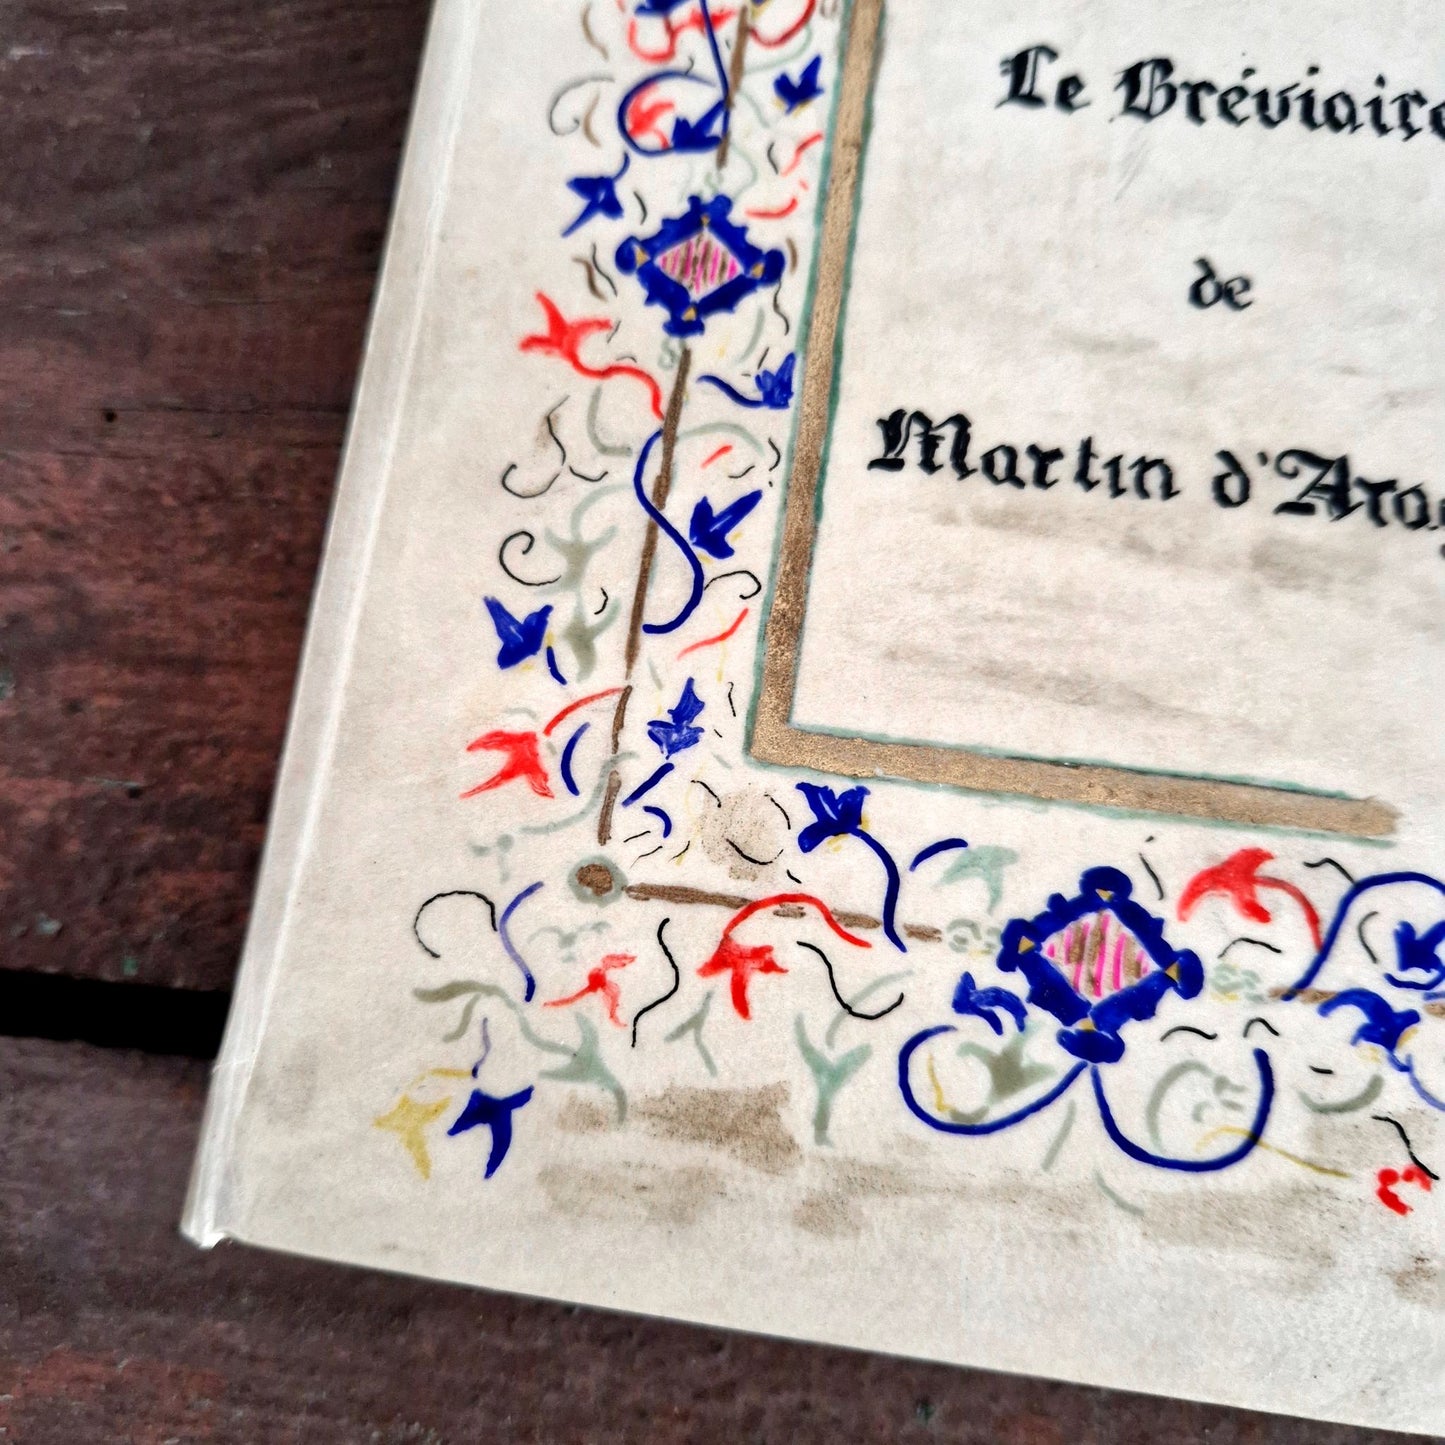 Le Bréviaire
de
Martin d'Arag